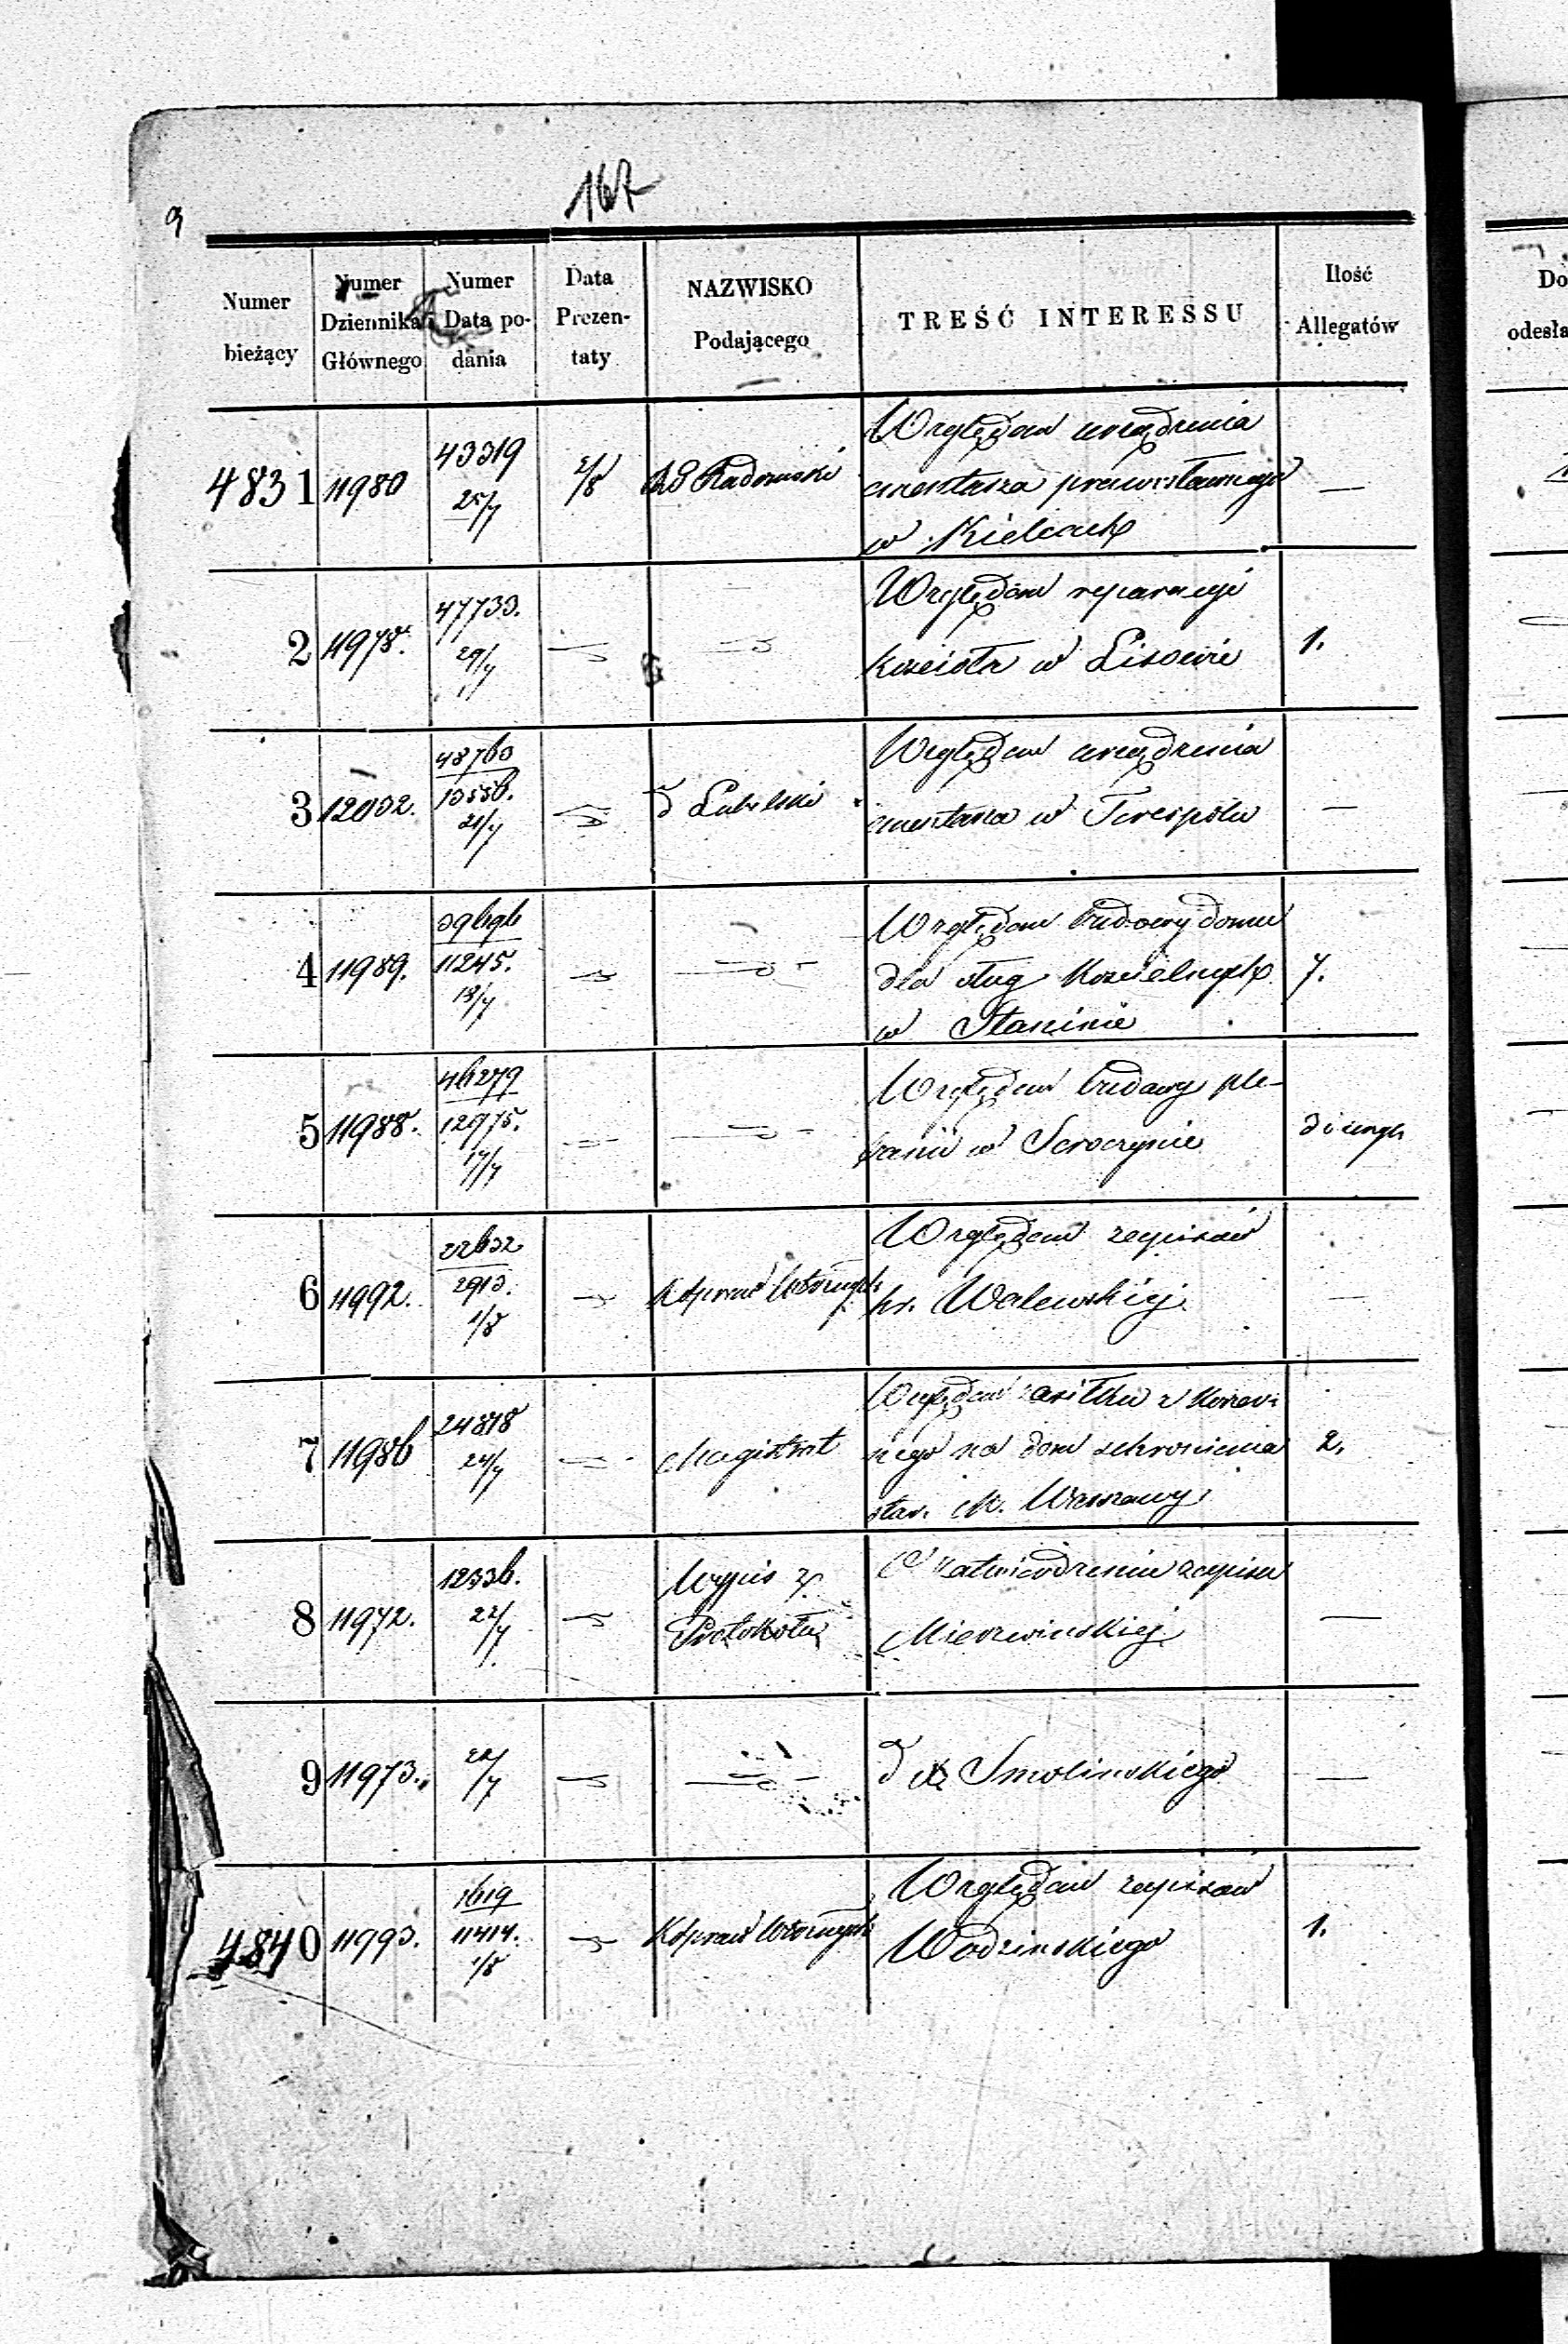 167
9
Numer bieżący | Numer Dziennika Głównego | Numer i Data podania | Data Prezentaty | NAZWISKO Podającego | TREŚĆ INTERESSU | Ilość Allegatów
Do
odesła
4831 | 11980 | 43319 25/7 | 2/8 | RG Radomski | Względem urządzenia
cmentarza prawosławnego
w Kielcach | —
2 | 11978. | 47733. 29/7 | — | — | Względem reparacyi
kościoła w Lisowie | 1.
3 | 12032. | 48763 13556. 21/7 | — | d Lubelski | Względem urządzenia
cmentarza w Terespolu | —
4 | 11989. | 39696 11245. 18/7 | — | — | Względem budowy domu
dla sług kościelnych
w Staninie | 7.
5 | 11988. | 46279 12975. 17/7 | — | — | Względem budowy ple-
banii w Seroczynie |
6 | 11992. | 22632 2913. 1/8 | — | | Względem zapisów
hr. Walewskiej | —
7 | 11986 | 24878 24/7 | — | Magistrat | Względem zasiłku z
na dom schronienia
star. M. Warszawy | 2.
8 | 11972. | 12336. 22/7 | — | Wypis z
Protokołu | O zatwierdzenie zapisu
Mierzwinskiej | —
9 | 11973. | 22/7 | — | — | d Smolinskiego | —
4840 | 11993. | 1619 11414. 1/8 | — | | Względem zapisów
Wodzinskiego | 1.